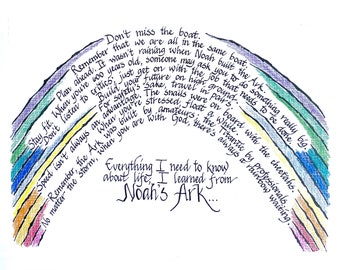 Don't miss the boat.
Remember that we are all in the same boat.
Plan ahead. It wasn't raining when Noah built the Ark.
Stay fit. When you're 600 years old, someone may ask you to do something really big.
Don't listen to critics; just get on with the job that needs to be done.
Build your future on high ground.
For safety's sake, travel in pairs.
Speed isn't always an advantage. The snails were on board with the cheetahs.
When you're stressed, float awhile.
Remember, the Ark was built by amateurs; the Titanic by professionals.
No matter the storm, when you are with God, there's always a rainbow waiting.
Everything I need to know
about life, I learned from
Noah's Ark...